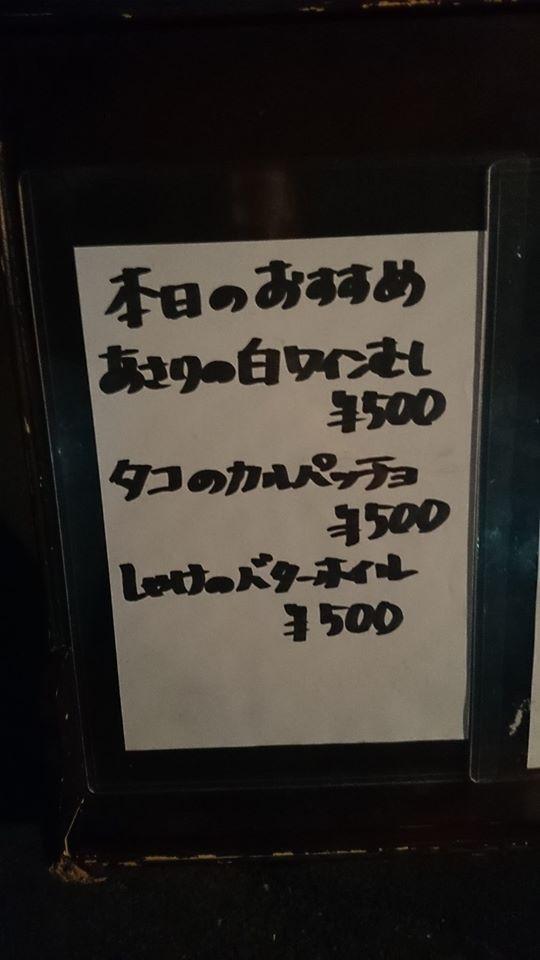 本日のおすすめ
あさりの白ワインむし
¥500
タコのカルパッチョ
¥500
しゃけのバターホイル
¥500